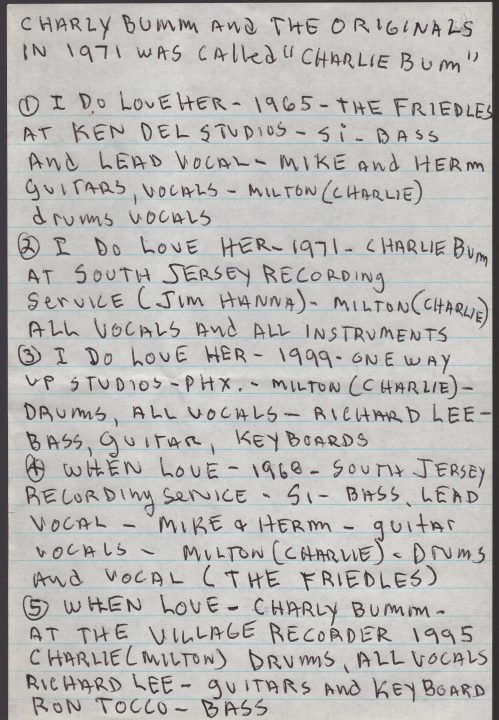 CHARLY BUMM AND THE ORIGINALS
IN 1971 WAS CALLED "CHARLIE BUM"
① I DO LOVE HER - 1965 - THE FRIEDLES
AT KEN DEL STUDIOS - SI - BASS
AND LEAD VOCAL - MIKE AND HERM
GUITARS, VOCALS - MILTON (CHARLIE)
DRUMS VOCALS
② I DO LOVE HER - 1971 - CHARLIE BUM
AT SOUTH JERSEY RECORDING
SERVICE (JIM HANNA) - MILTON (CHARLIE)
ALL VOCALS AND ALL INSTRVMENTS
③ I DO LOVE HER - 1999 - ONE WAY
UP STUDIOS - PHX. - MILTON (CHARLIE) -
DRUMS, ALL VOCALS - RICHARD LEE -
BASS, GUITAR, KEYBOARDS
④ WHEN LOVE - 1968 - SOUTH JERSEY
RECORDING SERVICE - SI - BASS, LEAD
VOCAL - MIKE & HERM - GUITAR
VOCALS - MILTON (CHARLIE) - DRUMS
AND VOCAL (THE FRIEDLES)
⑤ WHEN LOVE - CHARLY BUMM -
AT THE VILLAGE RECORDER 1995
CHARLIE (MILTON) DRUMS, ALL VOCALS
RICHARD LEE - GUITARS AND KEYBOARD
RON TOCCO - BASS